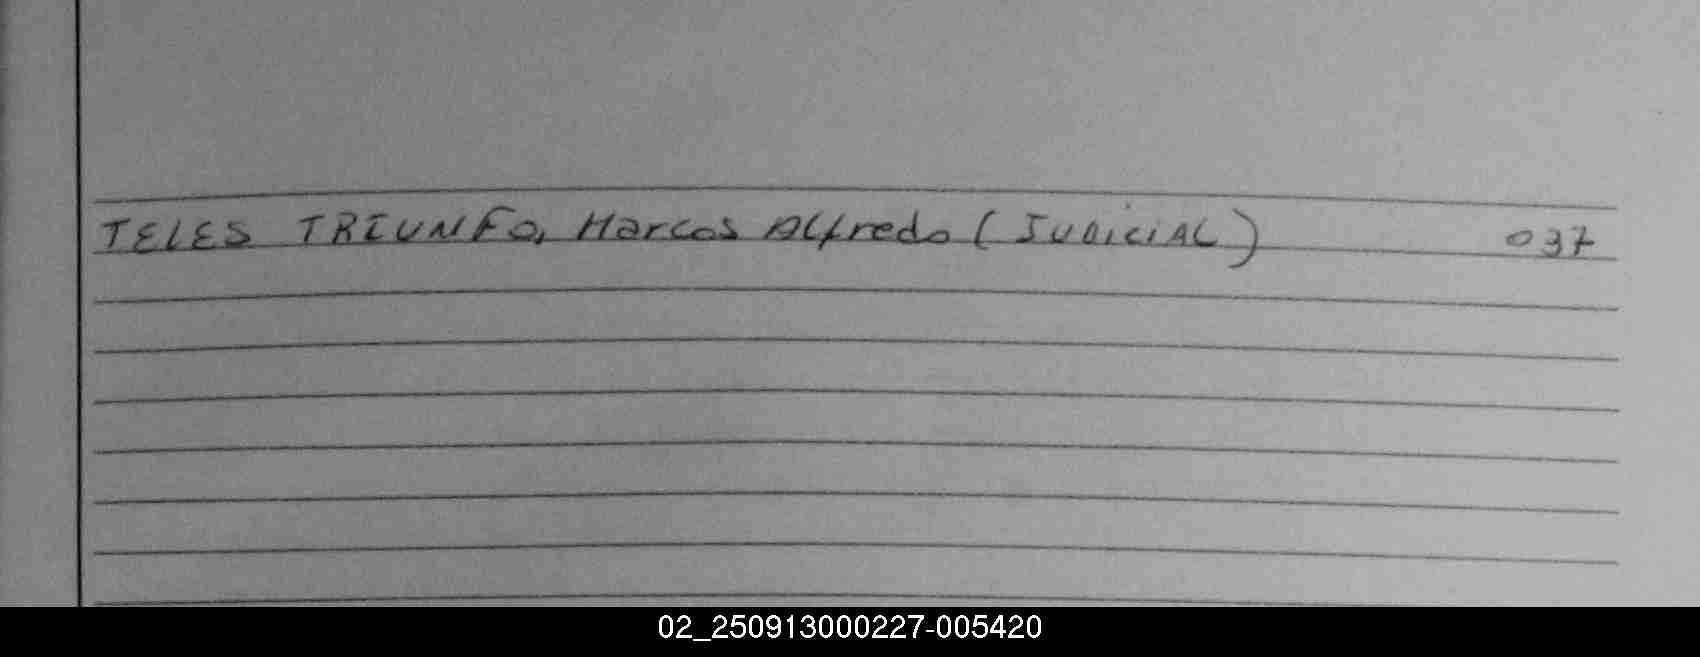 TELES TRIUNFO, Marcos Alfredo (JUDICIAL) 037
02_250913000227-005420